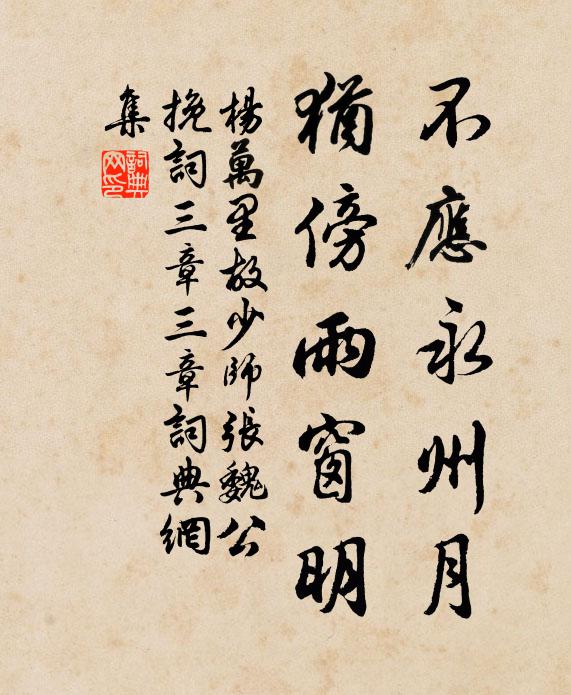 不應永州月
猶傍雨窗明
楊萬里故少師張魏公
挽詞三章三章詞典網
集
詞典
网印